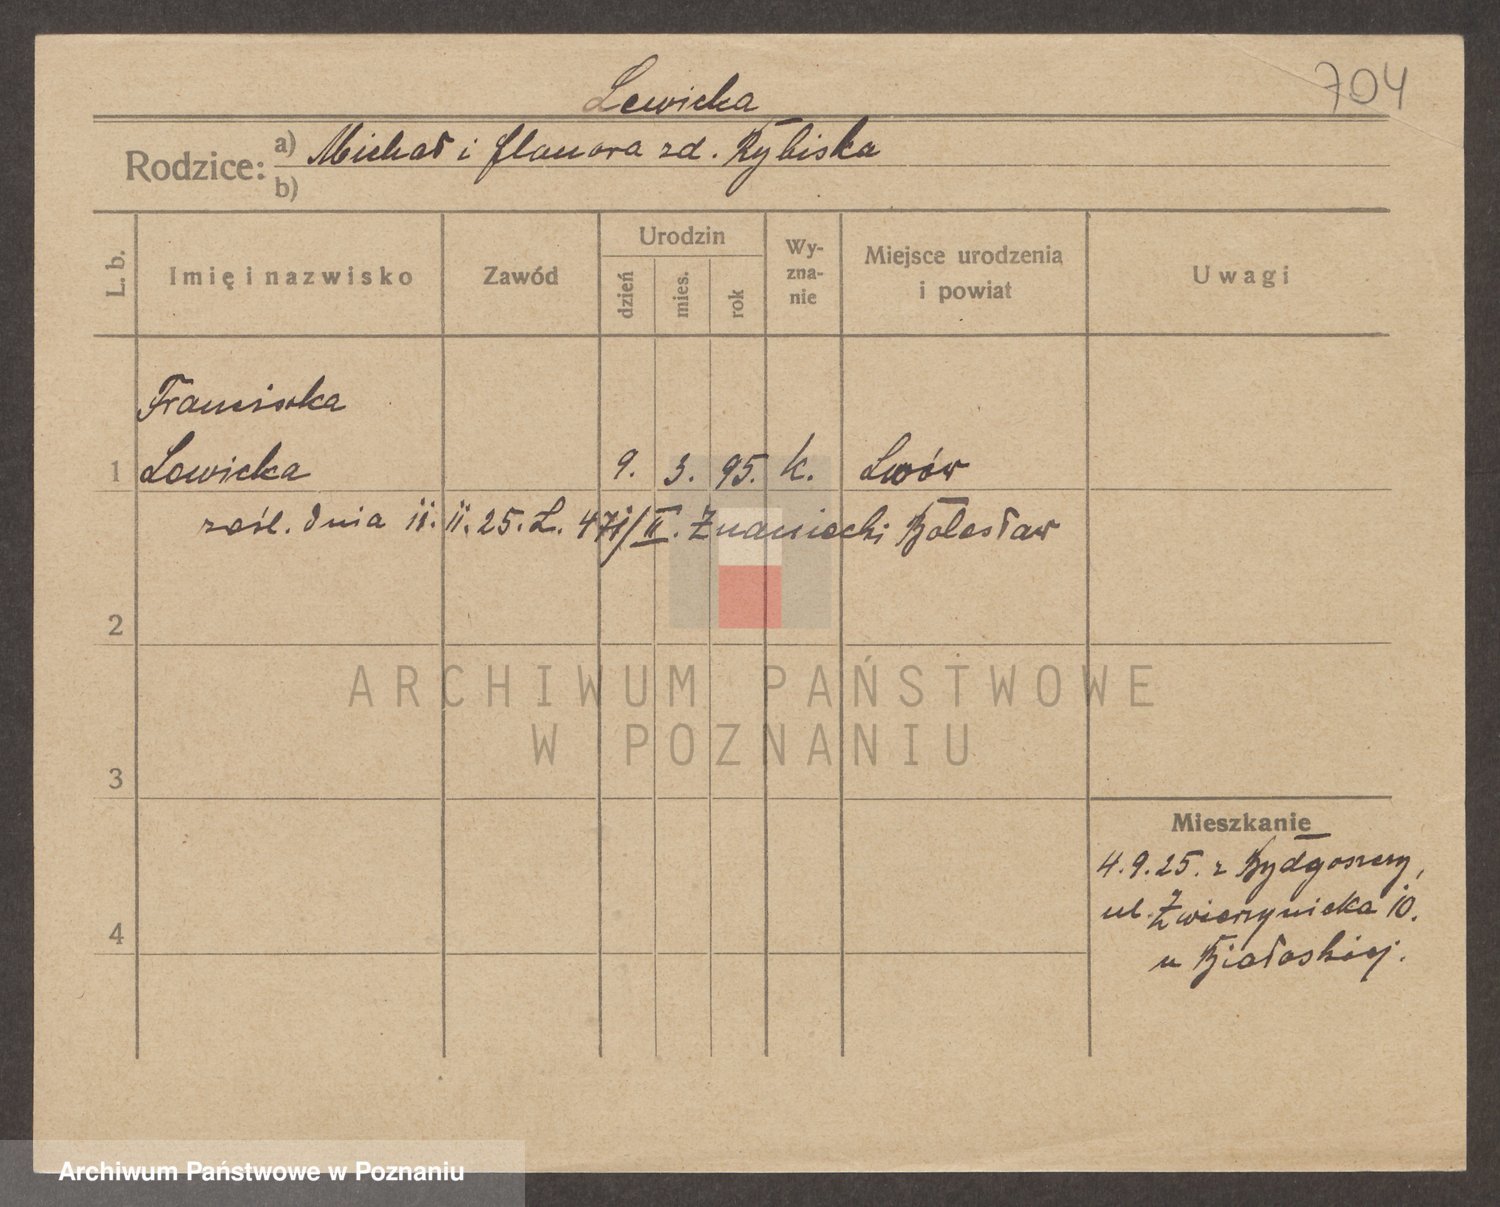 Lewicka
704
Rodzice: a) Michał i Elanora zd. Rybiska
b)
L. b. Imię i nazwisko Zawód Urodzin dzień mies. rok Wy-zna-nie Miejsce urodzenia i powiat Uwagi
Franciska
1 Lewicka 9. 3. 95. k. Lwów
zaśl. dnia 11. 11. 25. L. 471/II. Znaniecki Bolesław
2
ARCHIWUM PAŃSTWOWE
W POZNANIU
3
Mieszkanie
4.9.25. z Bydgoszczy,
ul. Zwierzyniecka 10.
4
u Białoskiej.
Archiwum Państwowe w Poznaniu